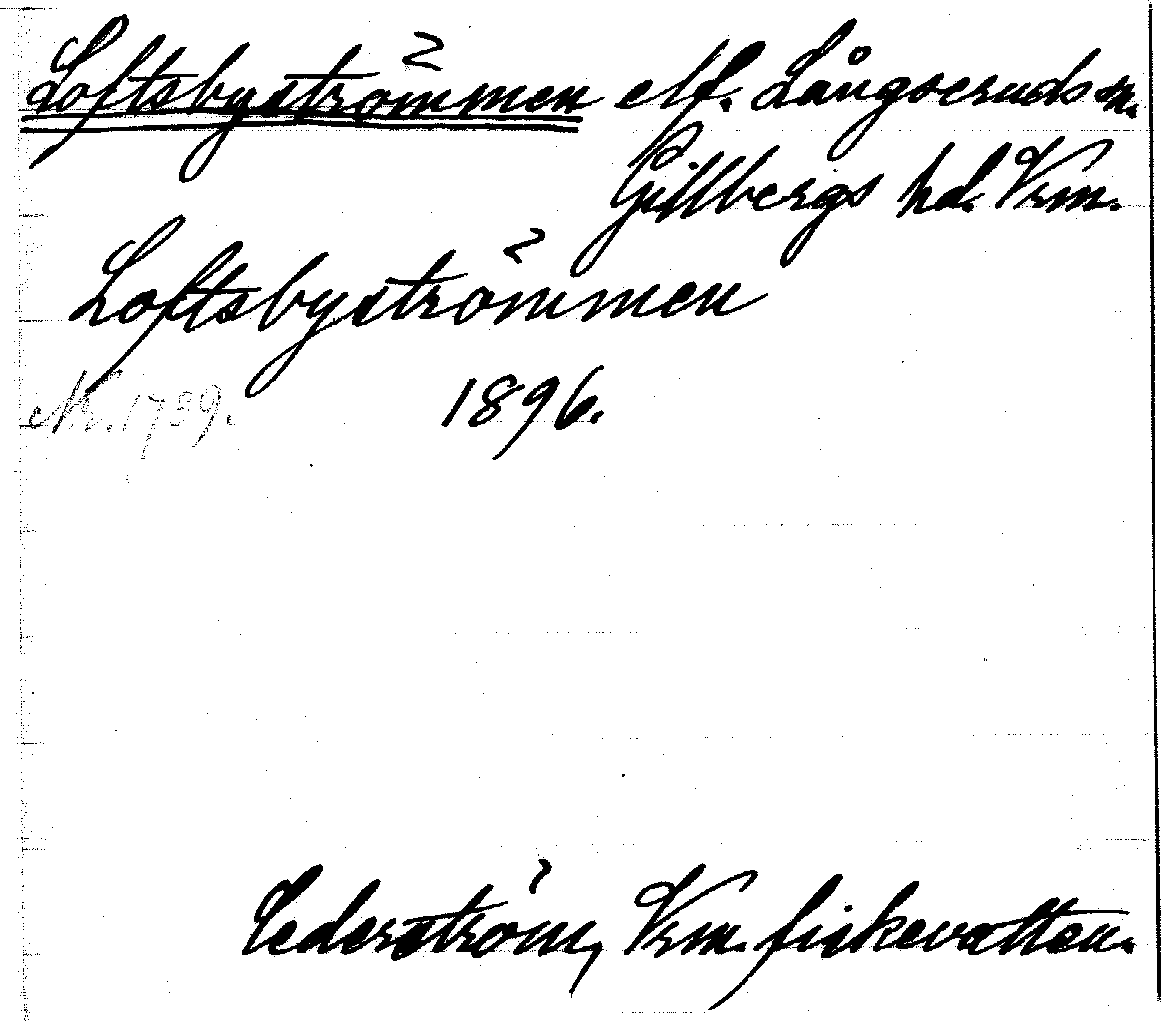 Loftsbyströmmen elf. Långseruds sn.
Gillbergs hd. Vrm.
Loftsbyströmmen
Nr. 1739. 1896.
Cederström, Vrm. fiskevatten.